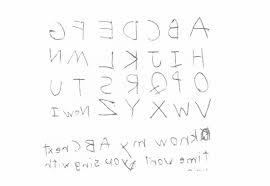 A B C D E F G
H I J K L M N
O P Q R S T U
V W X Y Z Now I
know my ABC next
time wont you sing with